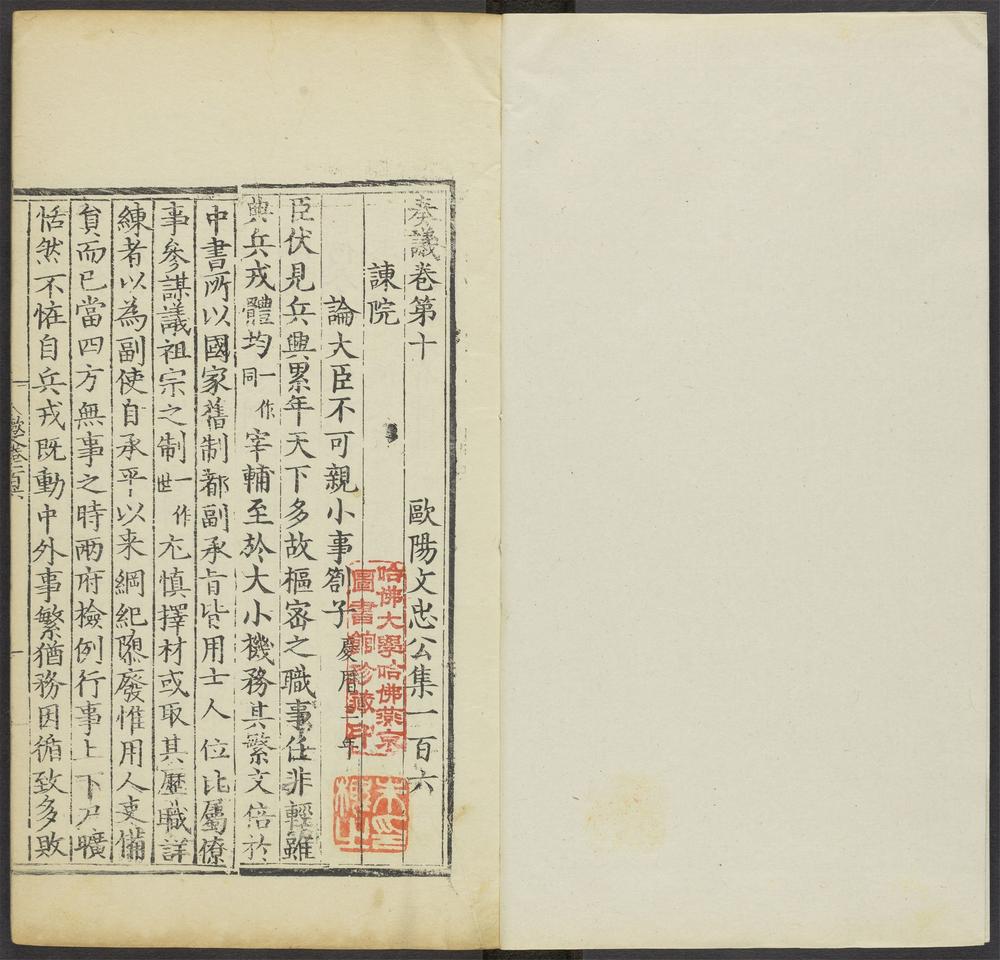 奏議卷第十　歐陽文忠公集一百六
諫院
論大臣不可親小事劄子慶曆二年
臣伏見兵興累年天下多故樞密之職事任非輕雖
典兵戎體均一作同宰輔至於大小機務其繁文倍於
中書所以國家舊制都副承旨皆用士人位比屬僚
事參謀議祖宗之制一作世尤慎擇材或取其歷職詳
練者以為副使自承平以来綱紀隳廢惟用人吏備
負而已當四方無事之時兩府檢例行事上下尸曠
恬然不恠自兵戎既動中外事繁猶務因循致多敗
哈佛大學哈佛燕京
圖書館珍藏印